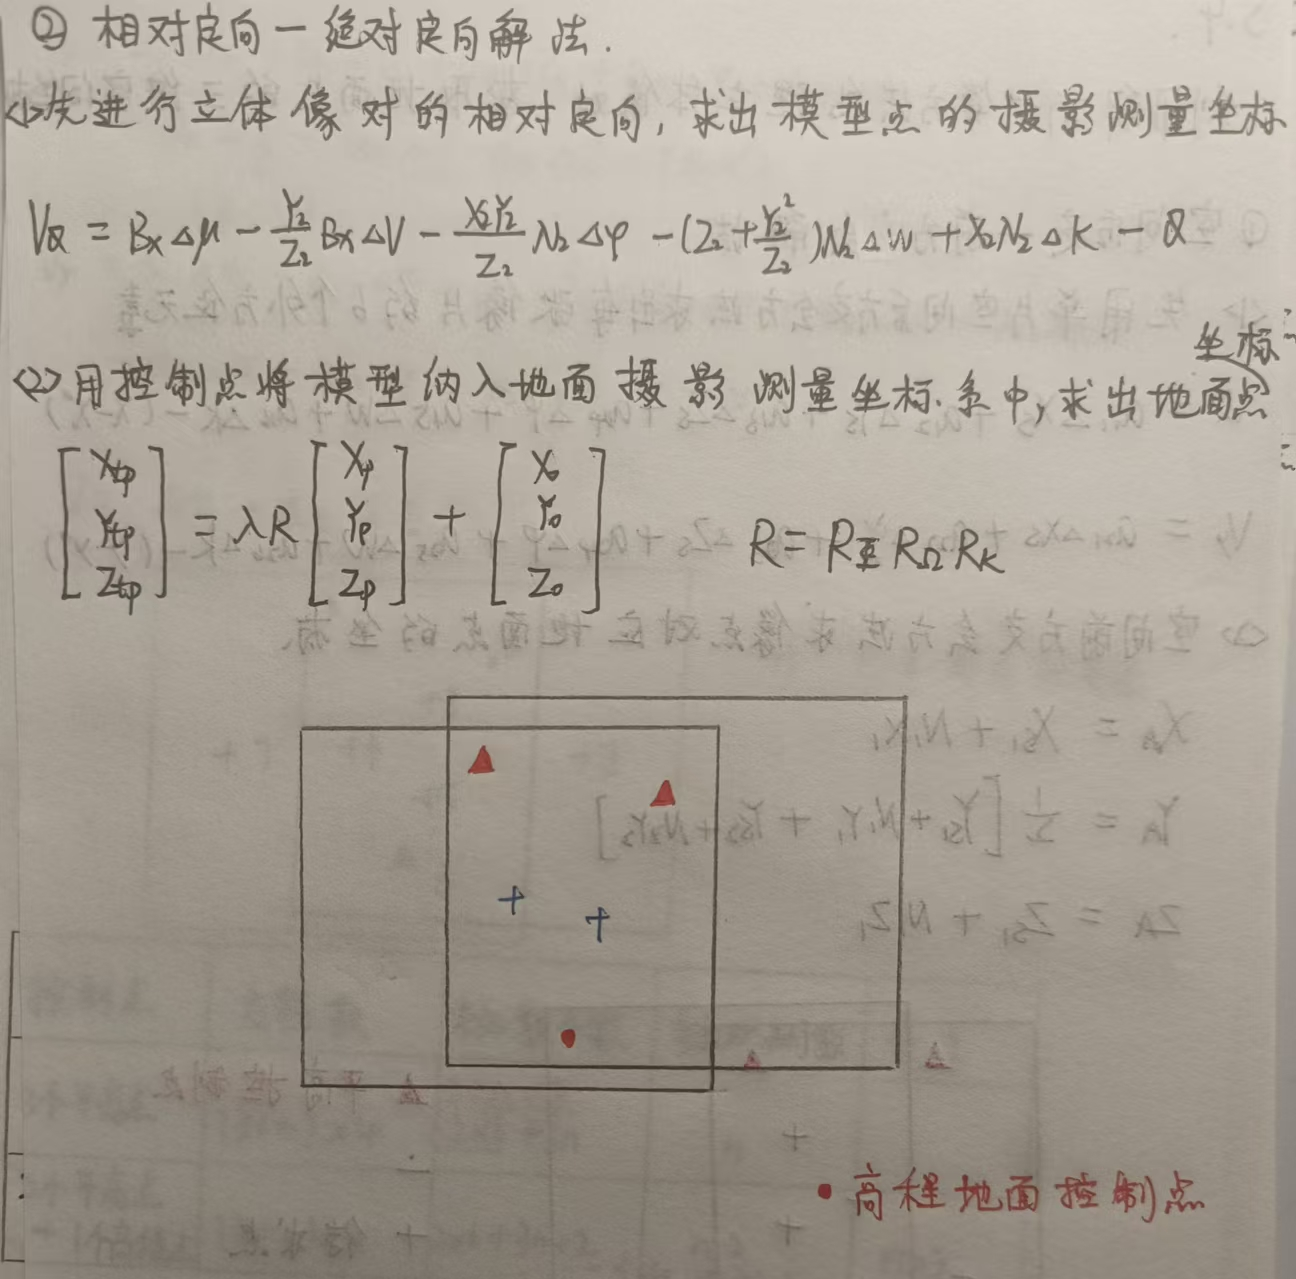 ② 相对定向—绝对定向解法.
<1>先进行立体像对的相对定向,求出模型点的摄影测量坐标
V_Q = BxΔμ - Y₂/Z₂ BxΔV - X₂Y₂/Z₂ N₂Δφ - (Z₂+Y₂²/Z₂)N₂Δw + X₂N₂ΔK - Q
<2>用控制点将模型纳入地面摄影测量坐标系中,求出地面点坐标
[Xtp Ytp Ztp] = λR [Xp Yp Zp] + [X₀ Y₀ Z₀] R = RΦ RΩ RK
•高程地面控制点